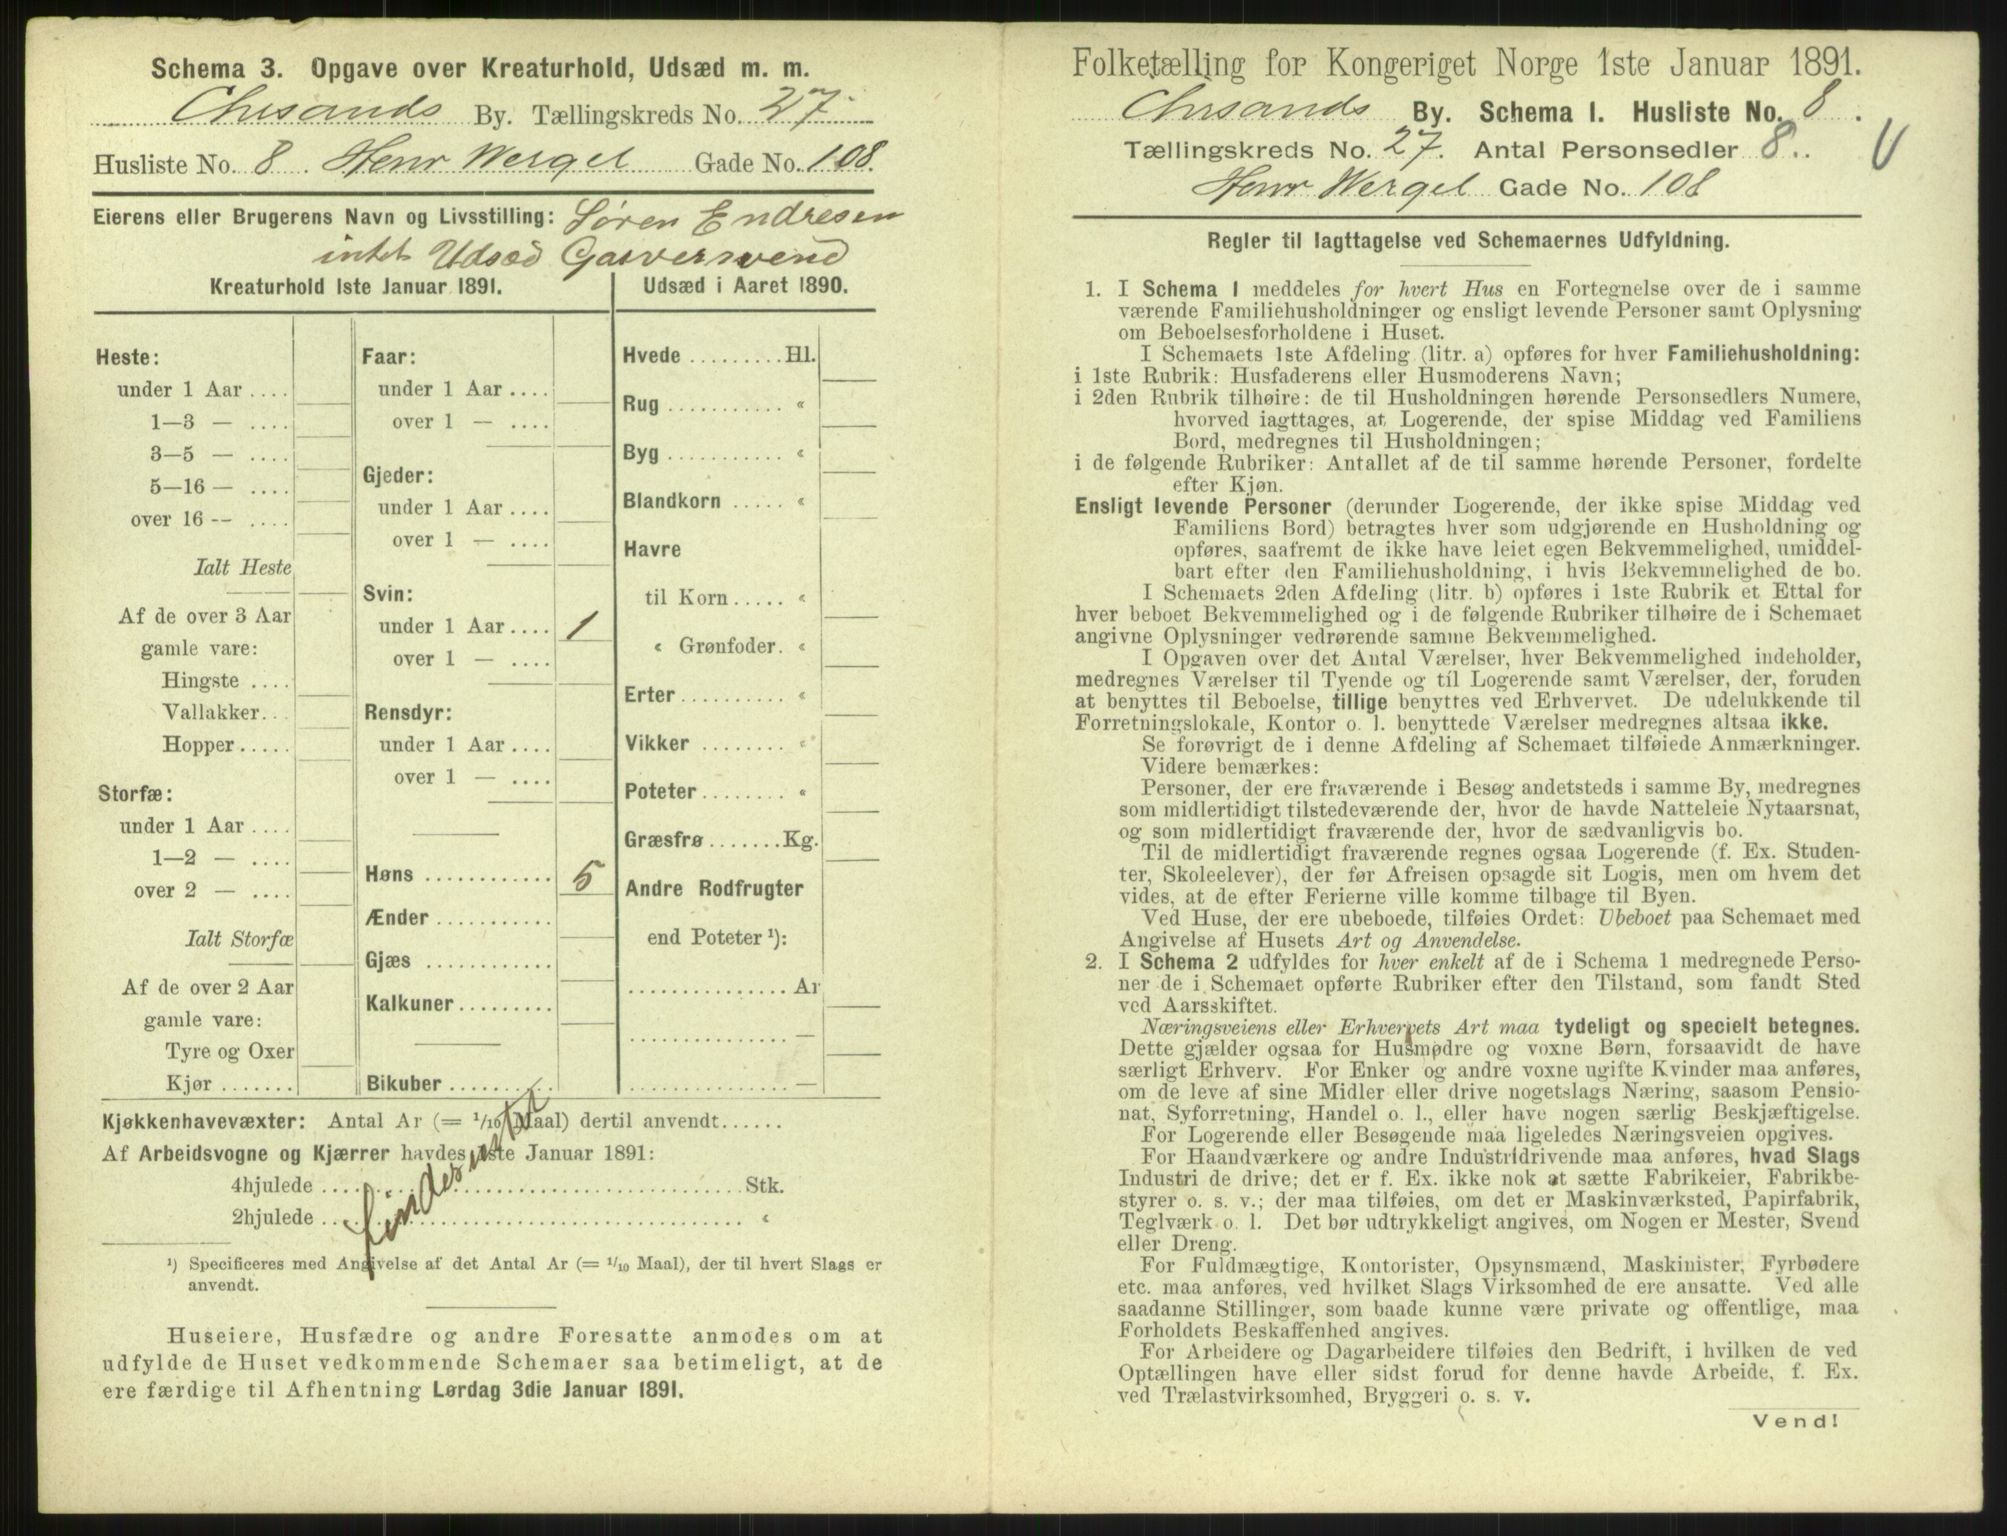 Schema 3. Opgave over Kreaturhold, Udsæd m. m.
Chrsands By. Tællingskreds No. 27
Husliste No. 8. Henr Wergel Gade No. 108.
Eierens eller Brugerens Navn og Livsstilling: Søren Endresen
intet Udsæd Garversvend
Kreaturhold 1ste Januar 1891.
Heste:
under 1 Aar ....
1—3 — ....
3—5 — ....
5—16 — ....
over 16 — ....
Ialt Heste
Af de over 3 Aar
gamle vare:
Hingste ....
Vallakker...
Hopper.....
Storfæ:
under 1 Aar ....
1—2 — ....
over 2 — ....
Ialt Storfæ
Af de over 2 Aar
gamle vare:
Tyre og Oxer
Kjør .......
Faar:
under 1 Aar ....
over 1 — ....
Gjeder:
under 1 Aar ....
over 1 — ....
Svin:
under 1 Aar.... 1
over 1 — ....
Rensdyr:
under 1 Aar ....
over 1 — ....
Høns ............ 5
Ænder...........
Gjæs ............
Kalkuner.........
Bikuber ..........
Udsæd i Aaret 1890.
Hvede .........Hl.
Rug ........... «
Byg ........... «
Blandkorn ..... «
Havre
til Korn..... «
« Grønfoder. «
Erter .......... «
Vikker ........ «
Poteter........ «
Græsfrø .......Kg.
Andre Rodfrugter
end Poteter ¹):
............... Ar
............... —
............... —
Kjøkkenhavevæxter: Antal Ar (= 1/10 Maal) dertil anvendt......
Af Arbeidsvogne og Kjærrer havdes 1ste Januar 1891:
4hjulede ........................................Stk.
2hjulede ........................................ «
¹) Specificeres med Angivelse af det Antal Ar (= 1/10 Maal), der til hvert Slags er
anvendt.
Huseiere, Husfædre og andre Foresatte anmodes om at
udfylde de Huset vedkommende Schemaer saa betimeligt, at de
ere færdige til Afhentning Lørdag 3die Januar 1891.
Folketælling for Kongeriget Norge 1ste Januar 1891.
Chrsands By. Schema I. Husliste No. 8.
Tællingskreds No. 27. Antal Personsedler 8..
Henr Wergel Gade No. 108
Regler til Iagttagelse ved Schemaernes Udfyldning.
1. I Schema 1 meddeles for hvert Hus en Fortegnelse over de i samme
værende Familiehusholdninger og ensligt levende Personer samt Oplysning
om Beboelsesforholdene i Huset.
I Schemaets 1ste Afdeling (litr. a) opføres for hver Familiehusholdning:
i 1ste Rubrik: Husfaderens eller Husmoderens Navn;
i 2den Rubrik tilhøire: de til Husholdningen hørende Personsedlers Numere,
hvorved iagttages, at Logerende, der spise Middag ved Familiens
Bord, medregnes til Husholdningen;
i de følgende Rubriker: Antallet af de til samme hørende Personer, fordelte
efter Kjøn.
Ensligt levende Personer (derunder Logerende, der ikke spise Middag ved
Familiens Bord) betragtes hver som udgjørende en Husholdning og
opføres, saafremt de ikke have leiet egen Bekvemmelighed, umiddel-
bart efter den Familiehusholdning, i hvis Bekvemmelighed de bo.
I Schemaets 2den Afdeling (litr. b) opføres i 1ste Rubrik et Ettal for
hver beboet Bekvemmelighed og i de følgende Rubriker tilhøire de i Schemaet
angivne Oplysninger vedrørende samme Bekvemmelighed.
I Opgaven over det Antal Værelser, hver Bekvemmelighed indeholder,
medregnes Værelser til Tyende og til Logerende samt Værelser, der, foruden
at benyttes til Beboelse, tillige benyttes ved Erhvervet. De udelukkende til
Forretningslokale, Kontor o. l. benyttede Værelser medregnes altsaa ikke.
Se forøvrigt de i denne Afdeling af Schemaet tilføiede Anmærkninger.
Videre bemærkes:
Personer, der ere fraværende i Besøg andetsteds i samme By, medregnes
som midlertidigt tilstedeværende der, hvor de havde Natteleie Nytaarsnat,
og som midlertidigt fraværende der, hvor de sædvanligvis bo.
Til de midlertidigt fraværende regnes ogsaa Logerende (f. Ex. Studen-
ter, Skoleelever), der før Afreisen opsagde sit Logis, men om hvem det
vides, at de efter Ferierne ville komme tilbage til Byen.
Ved Huse, der ere ubeboede, tilføies Ordet: Ubeboet paa Schemaet med
Angivelse af Husets Art og Anvendelse.
2. I Schema 2 udfyldes for hver enkelt af de i Schema 1 medregnede Perso-
ner de i Schemaet opførte Rubriker efter den Tilstand, som fandt Sted
ved Aarsskiftet.
Næringsveiens eller Erhvervets Art maa tydeligt og specielt betegnes.
Dette gjælder ogsaa for Husmødre og voxne Børn, forsaavidt de have
særligt Erhverv. For Enker og andre voxne ugifte Kvinder maa anføres,
om de leve af sine Midler eller drive nogetslags Næring, saasom Pensio-
nat, Syforretning, Handel o. l., eller have nogen særlig Beskjæftigelse.
For Logerende eller Besøgende maa ligeledes Næringsveien opgives.
For Haandværkere og andre Industridrivende maa anføres, hvad Slags
Industri de drive; det er f. Ex. ikke nok at sætte Fabrikeier, Fabrikbe-
styrer o. s. v.; der maa tilføies, om det er Maskinværksted, Papirfabrik,
Teglværk o. l. Det bør udtrykkeligt angives, om Nogen er Mester, Svend
eller Dreng.
For Fuldmægtige, Kontorister, Opsynsmænd, Maskinister, Fyrbødere
etc. maa anføres, ved hvilket Slags Virksomhed de ere ansatte. Ved alle
saadanne Stillinger, som baade kunne være private og offentlige, maa
Forholdets Beskaffenhed angives.
For Arbeidere og Dagarbeidere tilføies den Bedrift, i hvilken de ved
Optællingen have eller sidst forud for denne havde Arbeide, f. Ex.
ved Trælastvirksomhed, Bryggeri o. s. v.
Vend!